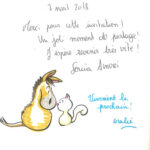 2 mai 2018
Merci pour cette invitation !
Un joli moment de partage !
J'espère revenir très vite !
Vivement la
prochaine !